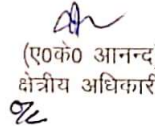 (ए०के० आनन्द
क्षेत्रीय अधिकारी